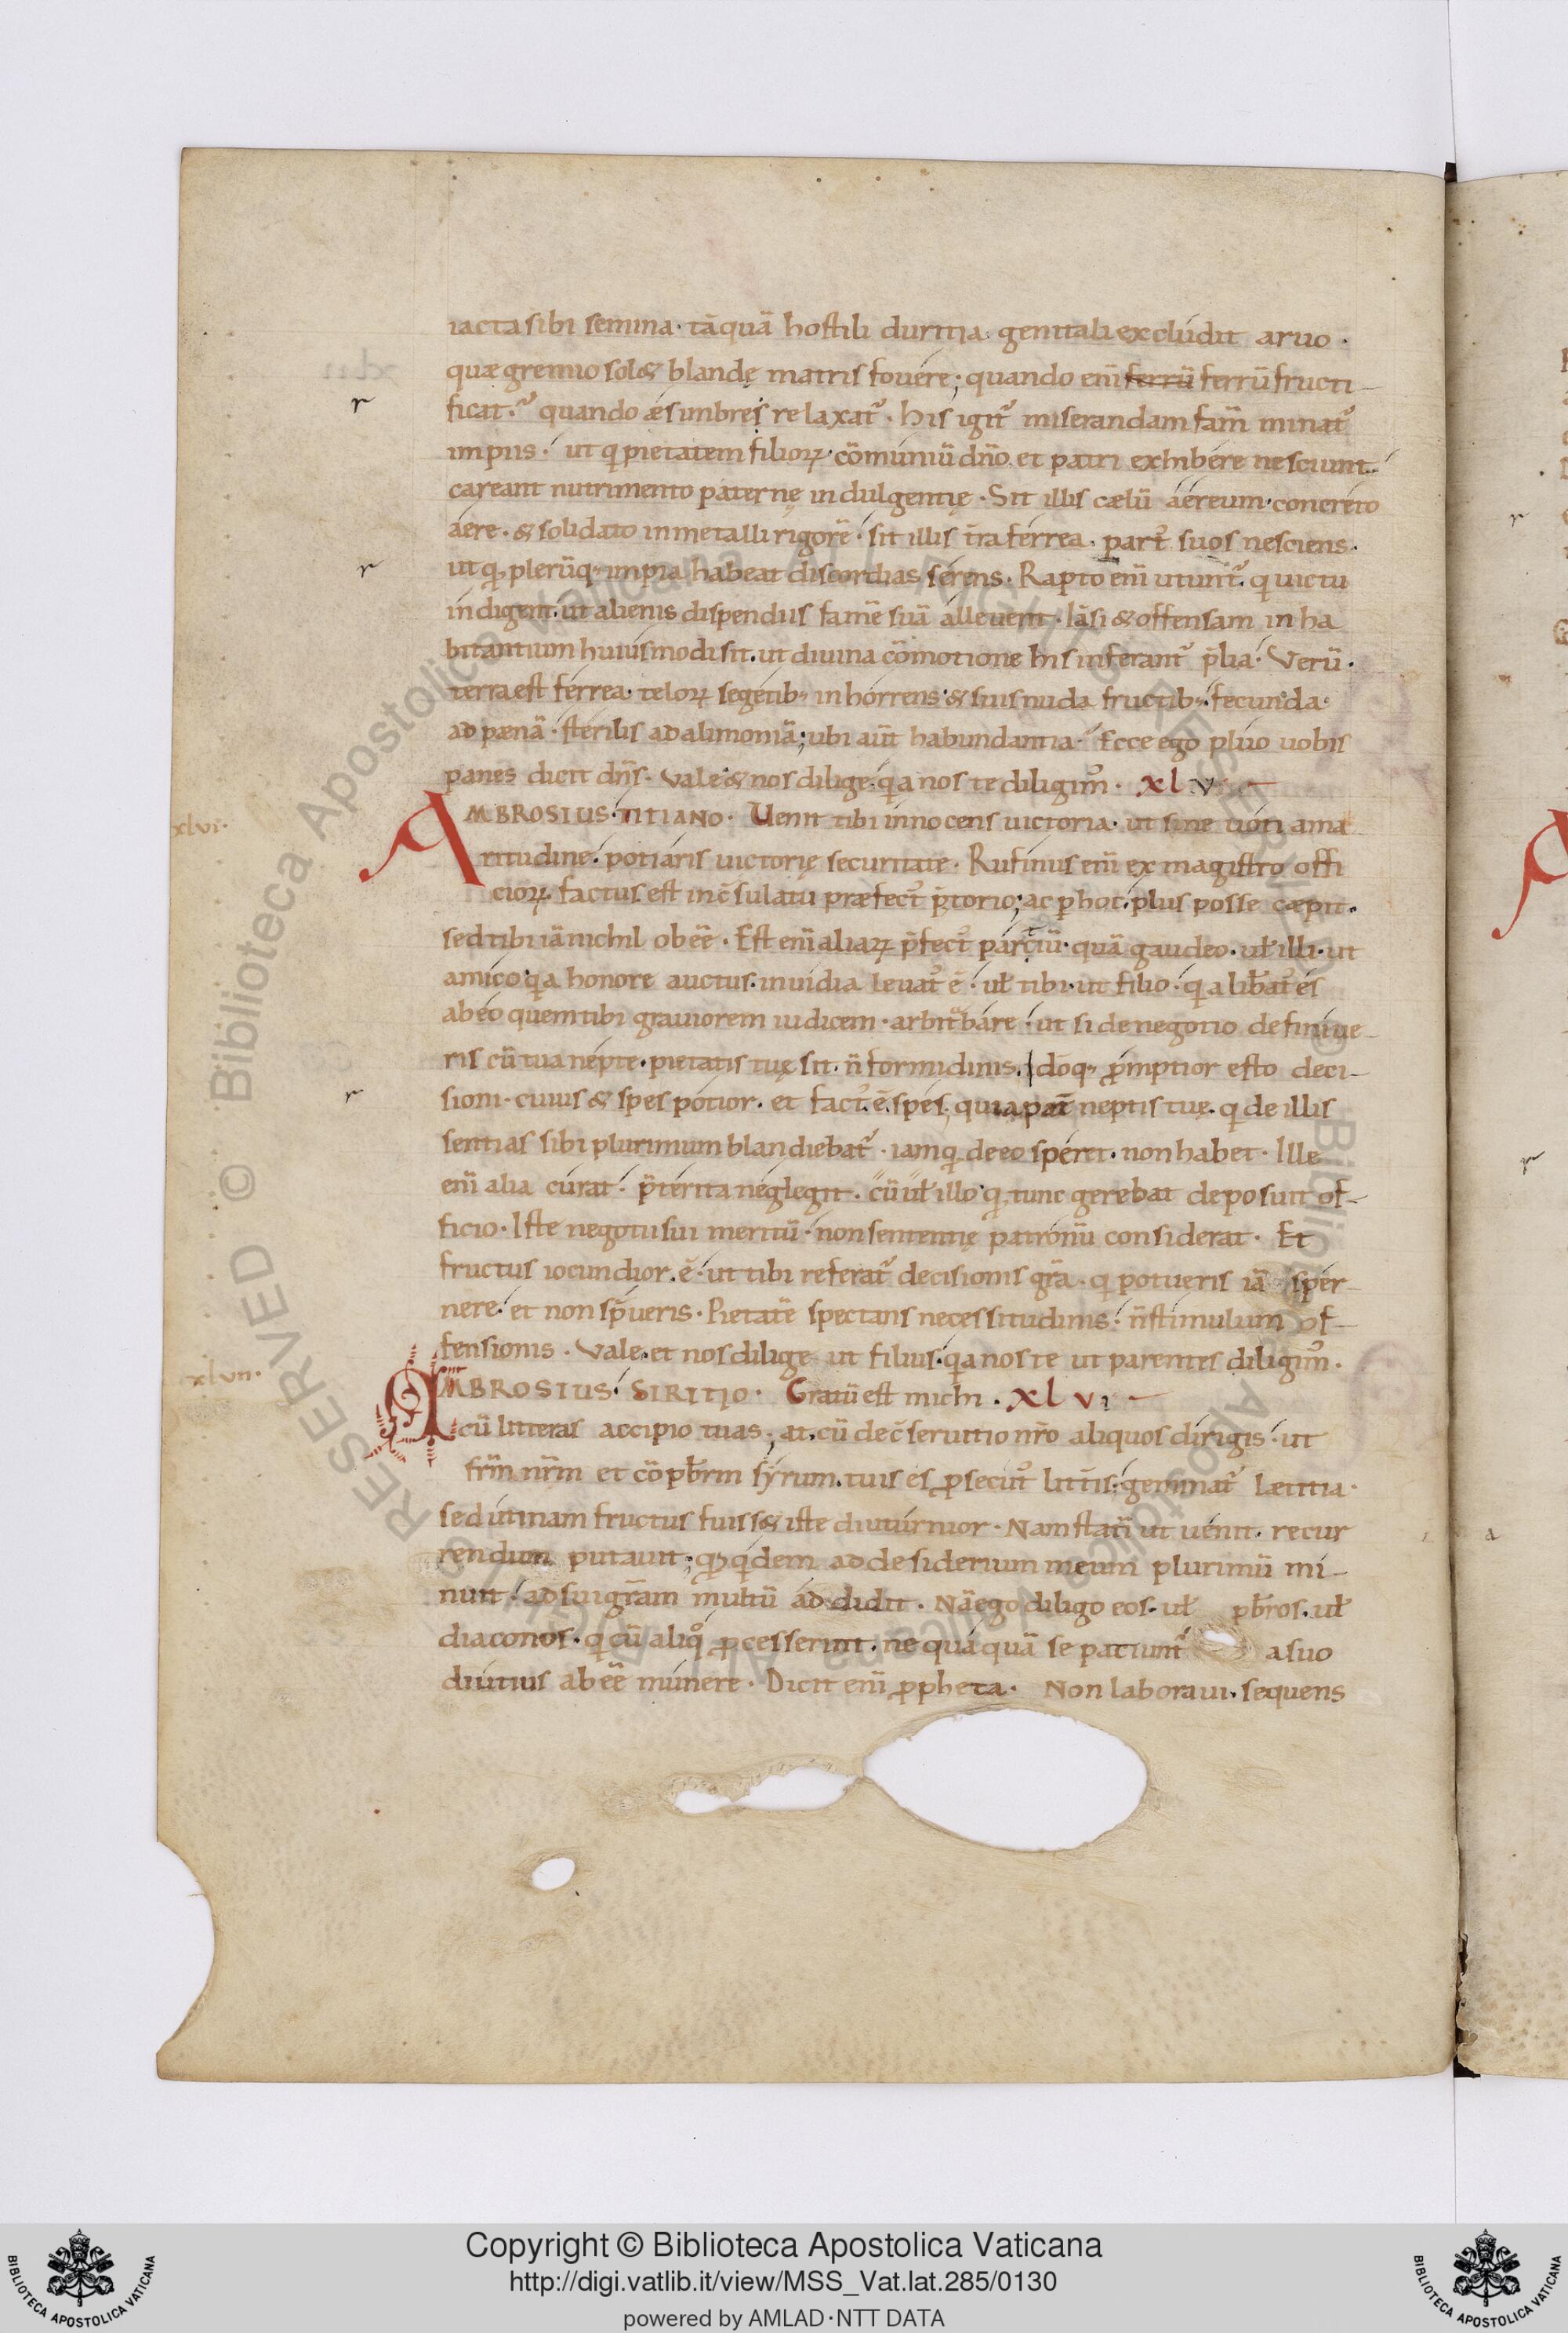 iacta sibi semina· tāquā hostili duritia· genitali excludit aruo·
quæ gremio sol& blandę matris fouere; quando eni᷑ ferrū ferrū fructi-
ficat·᷑ quando æs imbres relaxat᷑· His igit᷑ miserandam fam̄ minat᷑
impiis· ut q pietatem filioꝝ· cōmuniū dn̄o et patri exhibere nesciunt·
careant nutrimento paternę indulgentię· Sit illis cælū aereum· concreto
aere· & solidato in metalli rigorē· sit illis t̄ra ferrea· part᷑ suos nesciens·
ut qꝫ plerūqꝫ impia habeat discordias serens· Rapto eni᷑ utunt᷑· q uictu
indigent· ut alienis dispendiis famē suā alleuent· Iā si & offensam inha
bitantium huiusmodi sit· ut diuina cōmotione his inferant᷑ p̄lia· Verū·
terra est ferrea· teloꝝ segetibꝫ inhorrens· & suis nuda fructibꝫ· fecunda·
ad pænā· sterilis ad alimoniā; ubi aūt habundantia· Ecce ego pluo uobis
panes dicit dn̄s· Vale· & nos dilige· qa nos te diligim᷑· xlv
xlvi·
AMBROSIUS· TITIANO· Uenit tibi innocens uictoria· ut sine uoti ama
ritudine· potiaris uictorię securitate· Rufinus eni᷑ ex magistro offi
cioꝝ factus est in c̄sulatu præfect᷑ p̄torio; ac p hoc· plus posse cæpit·
sed tibi iā nichil obeē· Est eni᷑ aliaꝝ p̄fect᷑ partiū· quā gaudeo· uł illi· ut
amico· qa honore auctus· inuidia leuat᷑ ē· uł tibi· ut filio· qa libat᷑ es
ab eo quem tibi grauiorem iudicem· arbitbare· ut si de negotio definiue-
ris cū tua nepte· pietatis tuę sit· n̄ formidinis· Idōqꝫ p̄mptior esto deci-
sioni· cuius & spes potior· et fact᷑ ē spes· quia pat̄ neptis tuę· q de illis
sentias sibi plurimum blandiebat᷑· iam q de eo speret· non habet· Ille
eni᷑ alia curat· p̄terita neglegit· cū uł illo· q tunc gerebat deposuit of-
ficio· Iste negotii sui meritū· non sententię patronū considerat· Et
fructus iocundior ē· ut tibi referat᷑ decisionis gr̄a· q potueris iā sper-
nere· et non sp̄ueris· Pietatē spectans necessitudinis· n̄ stimulum of-
fensionis· Vale· et nos dilige ut filius· qa nos te ut parentes diligim᷑·
xlvii·
AMBROSIUS· SIRITIO· Gratū est michi· xlvi
cū litteras accipio tuas; at· cū de c̄seruitio nr̄o aliquos dirigis· ut
frm̄ nrm̄ et cōpbr̄m syrum· tuis es psecut᷑ litt̄is· geminat᷑ lætitia·
sed utinam fructus fuiss& iste diuturnior· Nam stati᷑ ut uenit· recur
rendum putauit; qꝫ qdem ad desiderium meum plurimū mi-
nuit· ad sui gr̄am multū addidit· Nā ego diligo eos· uł pbr̄os· uł
diaconos· q cū aliqͦ pcesserint· nequaquā se patiunt᷑ a suo
diutius abeē munere· Dicit eni᷑ ppheta· Non laboraui· sequens
Copyright © Biblioteca Apostolica Vaticana
http://digi.vatlib.it/view/MSS_Vat.lat.285/0130
powered by AMLAD·NTT DATA